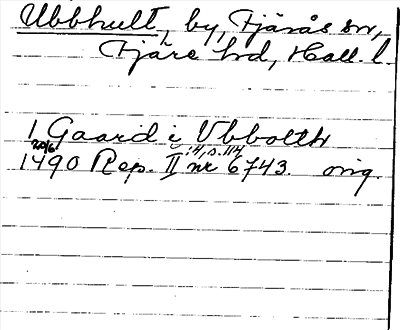 Ubbhult, by, Fjärås sn,
Fjäre hd, Hall. l.
1 Gaard i Vbbolth
20/6 :4, s. 114
1490 Rep. II nr 6743. orig.